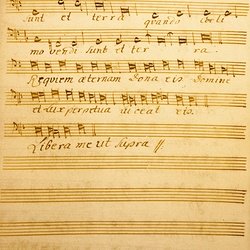 sunt et terra quando cœli
movendi sunt et ter ra.
Requiem æternam dona eis Domine
et lux perpetua luceat eis.
Libera me ut supra //